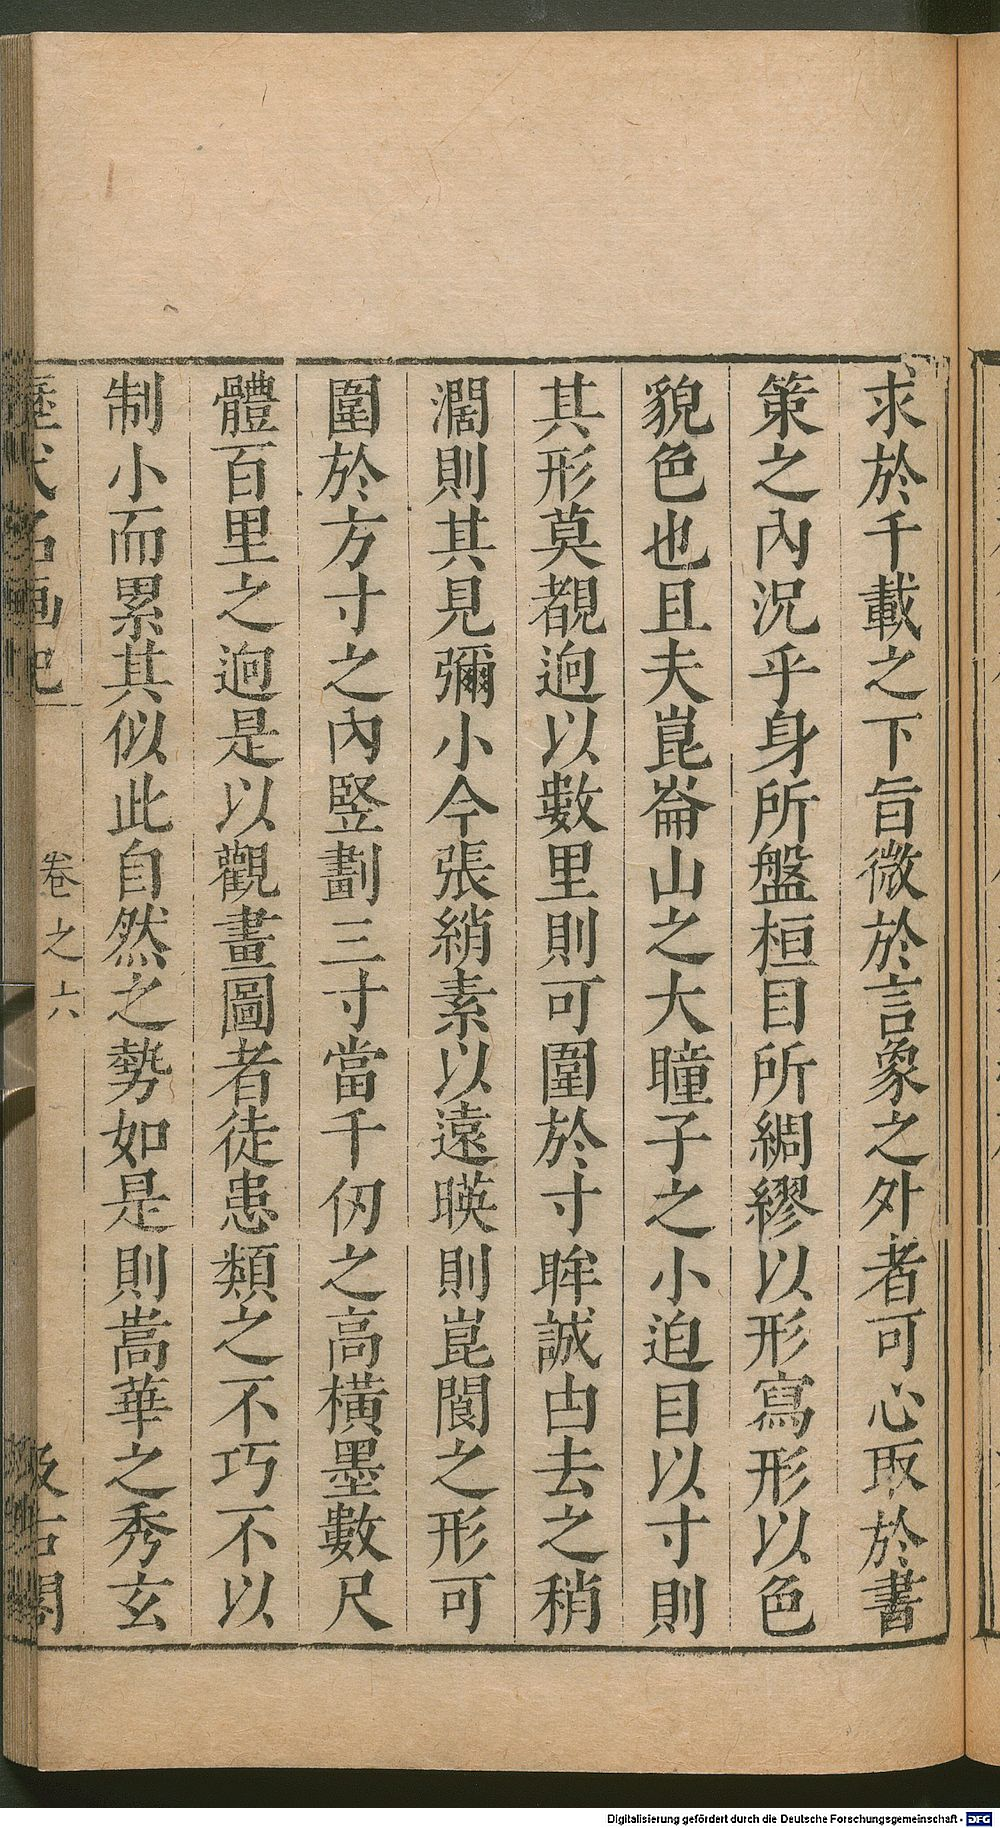 求於千載之下旨微於言象之外者可心取於書
策之內況乎身所盤桓目所綢繆以形寫形以色
貌色也且夫崑崙山之大瞳子之小迫目以寸則
其形莫覩逈以數里則可圍於寸眸誠由去之稍
濶則其見彌小今張綃素以遠暎則崑閬之形可
圍於方寸之內竪劃三寸當千仞之高橫墨數尺
體百里之逈是以觀畫圖者徒患類之不巧不以
制小而累其似此自然之勢如是則嵩華之秀玄
歷代名画記 卷之六 汲古閣
Digitalisierung gefördert durch die Deutsche Forschungsgemeinschaft - DFG